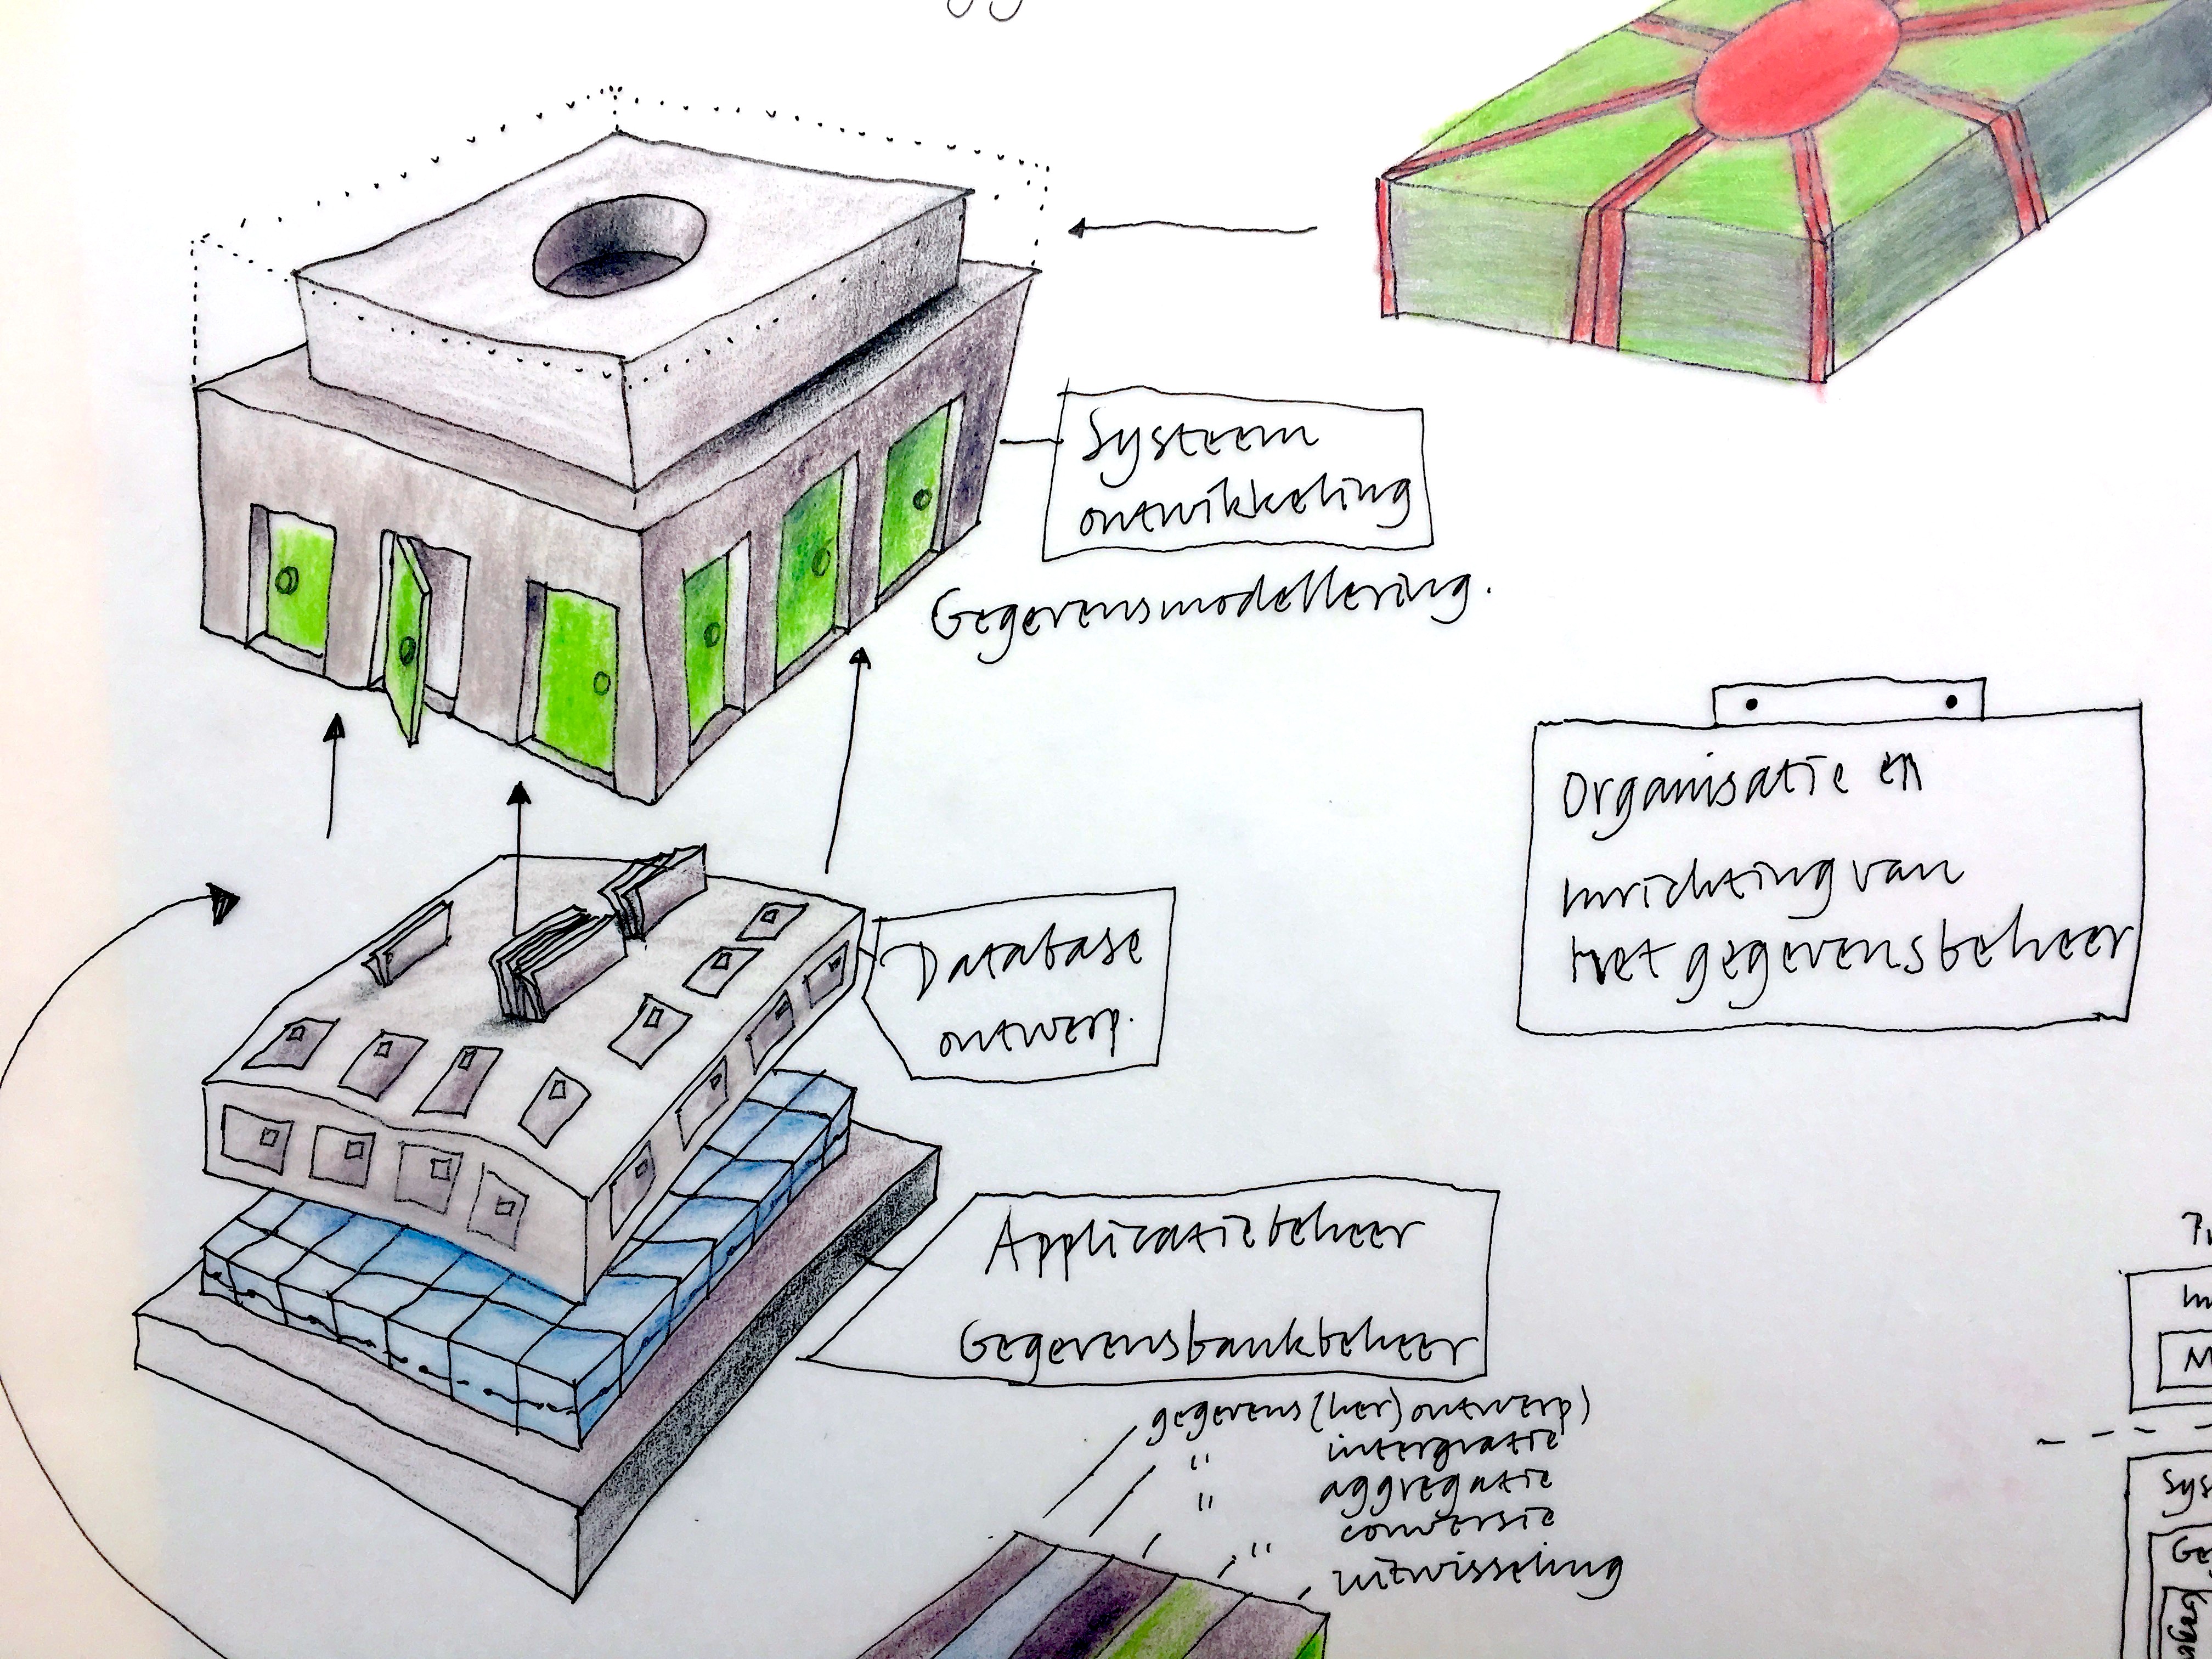 Systeem
ontwikkeling
Gegevensmodellering.
Organisatie en
inrichting van
Het gegevensbeheer
Database
ontwerp.
Applicatiebeheer
Gegevensbankbeheer
gegevens (her) ontwerp)
" intergratie
" aggregatie
conversie
" uitwisseling
Sys
Ge